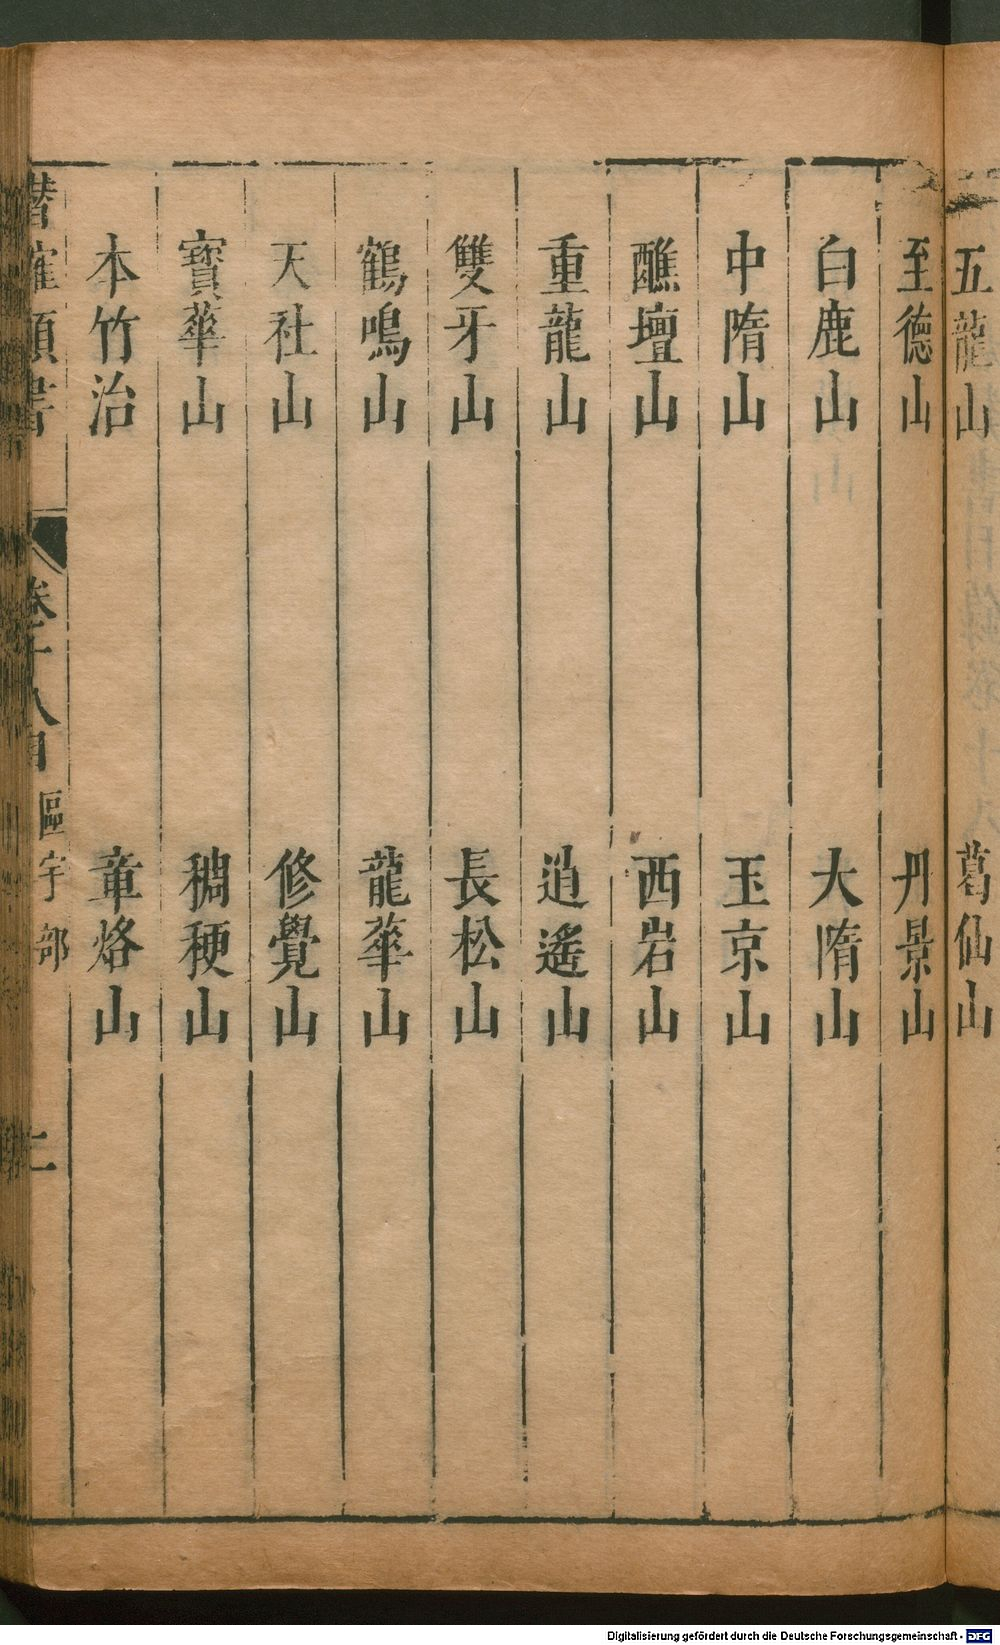 五龍山 葛仙山
至德山 丹景山
白鹿山 大隋山
中隋山 玉京山
醮壇山 西岩山
重龍山 逍遙山
雙牙山 長松山
鶴鳴山 龍華山
天社山 修覺山
寶華山 稠稉山
本竹治 章烙山
潛確類書 卷十八目 區宇部 二
Digitalisierung gefördert durch die Deutsche Forschungsgemeinschaft - DFG